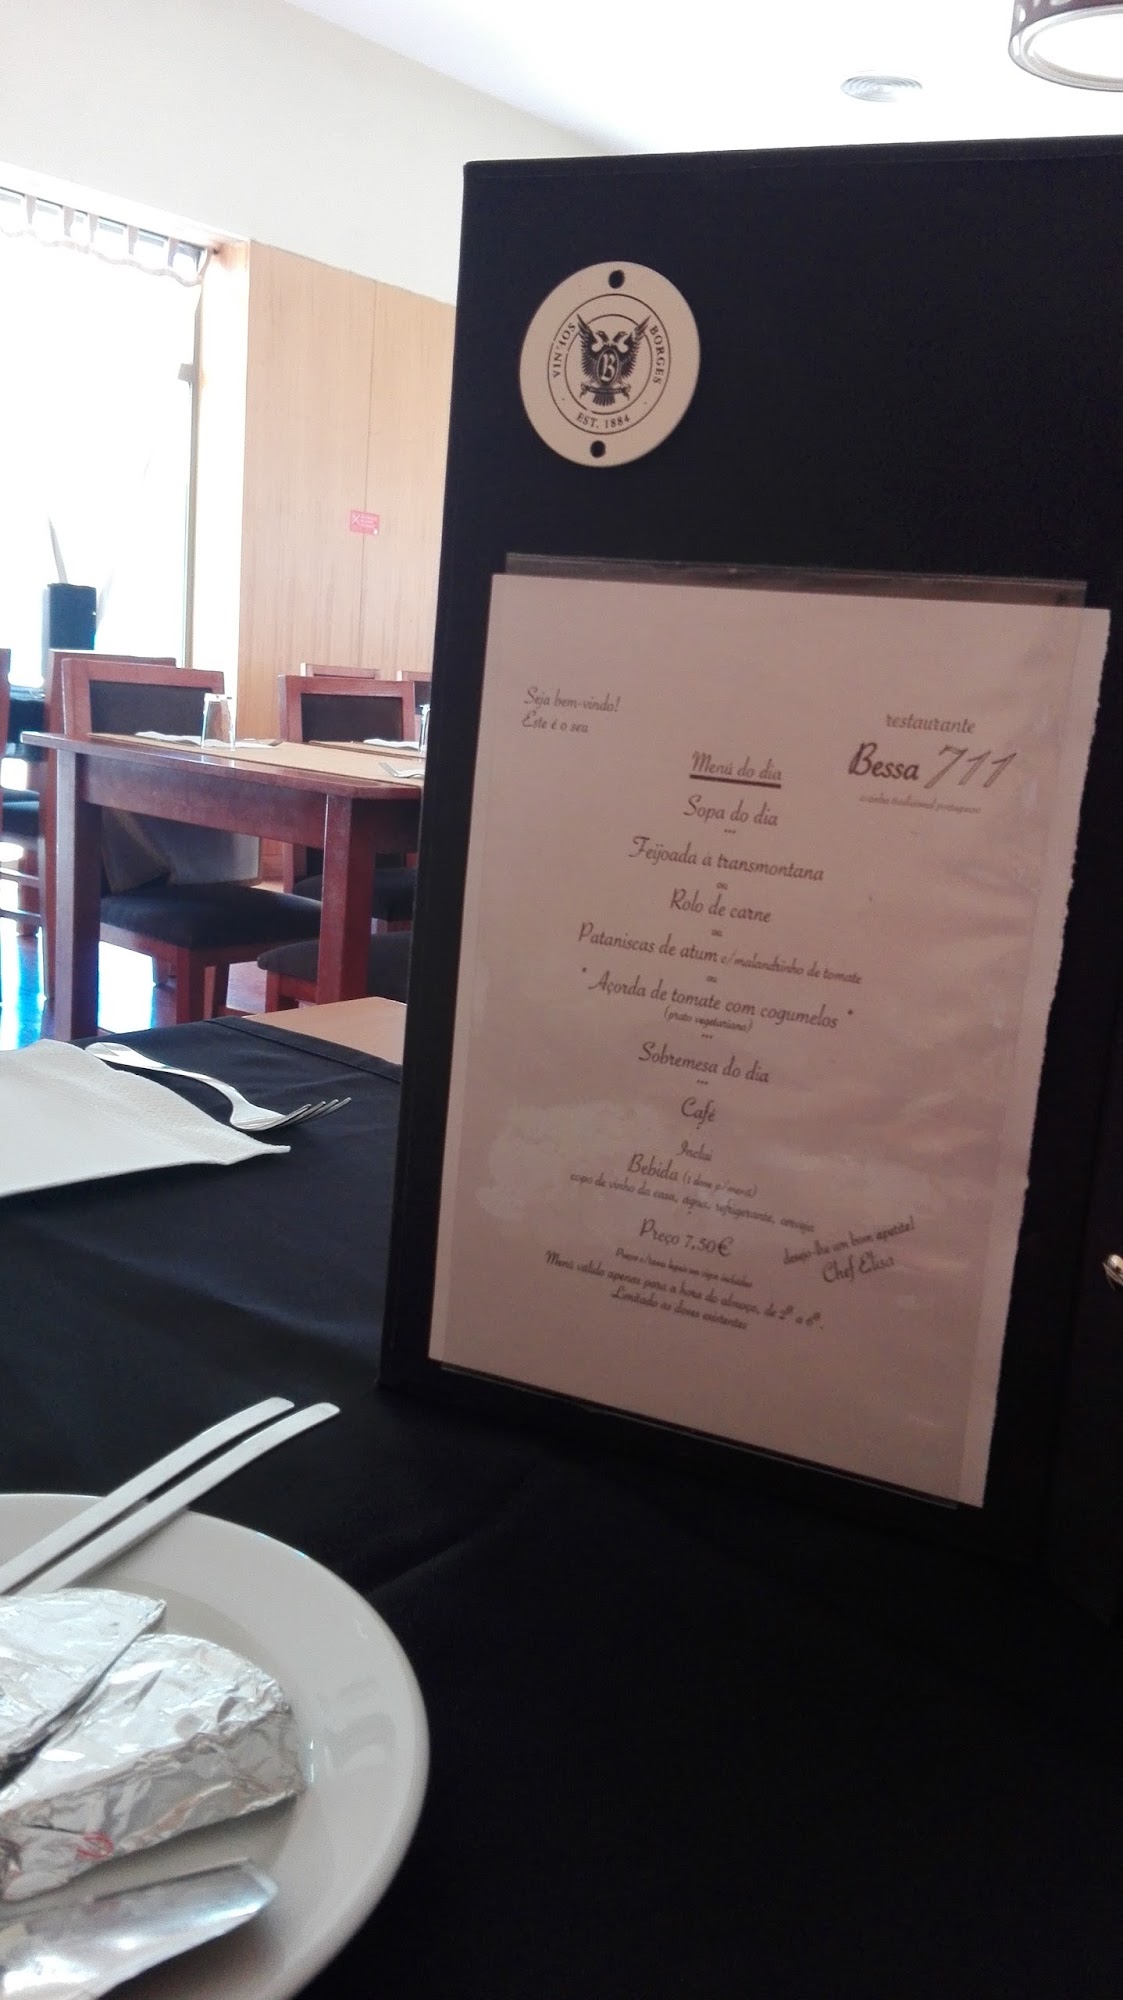 VINHOS BORGES
B
EST. 1884
Seja bem-vindo!
Este é o seu
restaurante
Bessa 711
cozinha tradicional portuguesa
Menú do dia
Sopa do dia
***
Feijoada à transmontana
ou
Rolo de carne
ou
Pataniscas de atum c/malandrinho de tomate
ou
* Açorda de tomate com cogumelos *
(prato vegetariano)
***
Sobremesa do dia
***
Café
Inclui
Bebida (1 dose p/menú)
copo de vinho da casa, água, refrigerante, cerveja
Preço 7,50€
desejo-lhe um bom apetite!
Chef Elisa
Menú valido apenas para a hora do almoço, de 2ª a 6ª.
Limitado as doses existentes